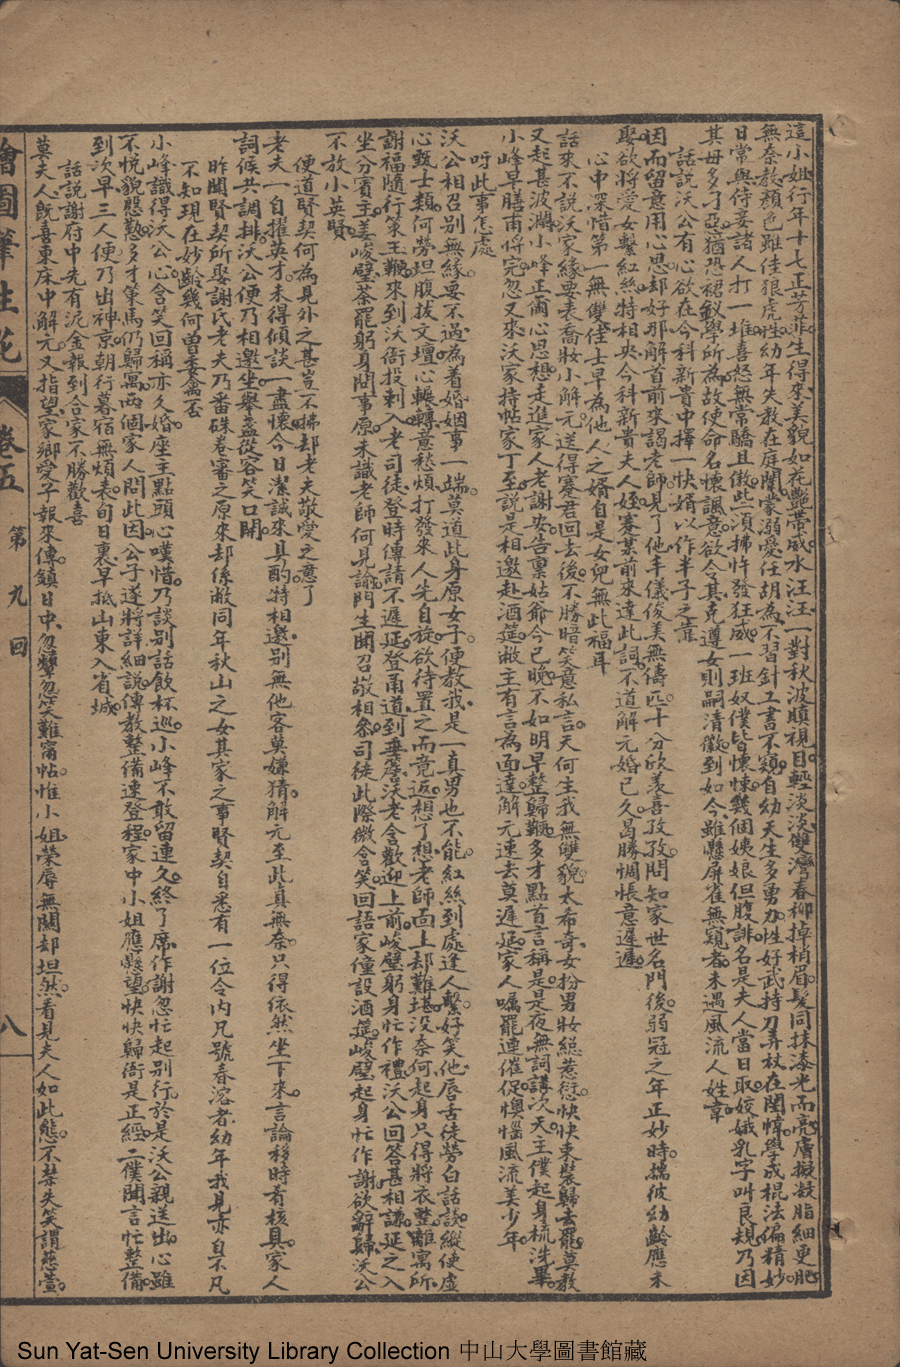 這小姐行年十七正芳菲生得來美貌如花艷帶威水汪汪一對秋波順視目輕淡淡雙灣春柳掉梢眉髮同抹漆光而亮膚擬凝脂細更肥
無奈教顏色雖佳狼虎性幼年失教在庭闈蒙溺愛任胡為不習針工書不窺自幼天生多勇力性好武持刀弄杖在閨幃學成棍法偏精妙
日常與侍妾諸人打一堆喜怒無常驕且傲些須拂忤發狂威一班奴僕皆懷悚幾個姨娘但腹誹名是夫人當日取姣娥乳字叫良規乃因
其母多刁惡猶恐裙釵學所為故使命名懷諷意欲令其克遵女則嗣清徽到如今雖懸屏雀無窺者未遇風流人姓韋
話說沃公有心欲在今科新貴中擇一快婿以作半子之靠
因而留意用心思却好那解首前來謁老師見了他丰儀俊美無儔匹十分欣羡喜孜孜問知家世名門後弱冠之年正妙時孺彼幼齡應未
娶欲將愛女繫紅絲特相央今科新貴夫人姪寨某前來達此詞不道解元婚已久曷勝惆悵意遲遲
心中深惜第一無雙佳士早為他人之婿自是女兒無此福耳
話來不說沃家緣要表喬妝小解元送得蹇君回去後不勝暗笑意私言天何生我無雙貌太希奇女扮男妝總惹愆快快東裝歸去罷莫教
又起甚波瀾小峰正爾心思想走進家人老謝安告稟姑爺今已晚不如明早整歸鞭多才點首言稱是是夜無詞講次天主僕起身梳洗畢
小峰早膳甫將完忽又來沃家持帖家丁至說是相邀赴酒筵敝主有言為面達解元速去莫遲延家人囑罷連催促懊惱風流姜少年
呀此事怎處
沃公相召別無緣要不過為着婚姻事一端莫道此身原女子便教我是一真男也不能紅絲到處逢人繫好笑他唇舌徒勞白話談縱使虛
心甄士類何勞坦腹拔文壇心輾轉意愁煩打發來人先自旋欲待置之而竟返想了想老師面上却難堪沒奈何起身只得將衣整離寓所
謝福隨行策玉鞭來到沃衙投刺入老司徒登時傳請不遲延登甬道到垂簷沃老含歡迎上前峻璧躬身忙作禮沃公回答甚相謙延之入
坐分賓主姜峻璧茶罷躬身問事原未識老師何見諭門生聞召敬相叅司徒此際微含笑回語家僮設酒筵峻璧起身忙作謝欲辭歸沃公
不放小英賢
便道賢契何為見外之甚豈不拂却老夫敬愛之意了
老夫一自擢英才未得傾談一盡懷今日潔誠來具酌特相邀別無他客莫嫌猜解元至此真無奈只得依然坐下來言論移時肴核具家人
詞候共調排沃公便乃相邀坐舉盞從容笑口開
昨聞賢契所娶謝氏老夫乃番硃卷審之原來却係敝同年秋山之女其家之事賢契自悉有一位令內兄號春溶者幼年我見亦自不凡
不知現在妙齡幾何曾委禽否
小峰識得沃公心含笑回稱亦久婚座主點頭心嘆惜乃談別話飲杯巡小峰不敢留連久終了席作謝忽忙起別行於是沃公親送出心雖
不悅貌慇懃多才策馬仍歸寓兩個家人問此因公子遂將詳細說傳教整備速登程家中小姐應懸望快快歸衙是正經二僕聞言忙整備
到次早三人便乃出神京朝行暮宿無煩表旬日裏早抵山東入省城
話說謝府中先有泥金報到合家不勝歡喜
莫夫人旣喜東床中解元又指望家鄉愛子報來傳鎮日中忽顰忽笑難甯帖惟小姐榮辱無關却坦然看見夫人如此態不禁失笑謂慈萱
繪圖筆生花
卷五
第九回
八
Sun Yat-Sen University Library Collection 中山大學圖書館藏